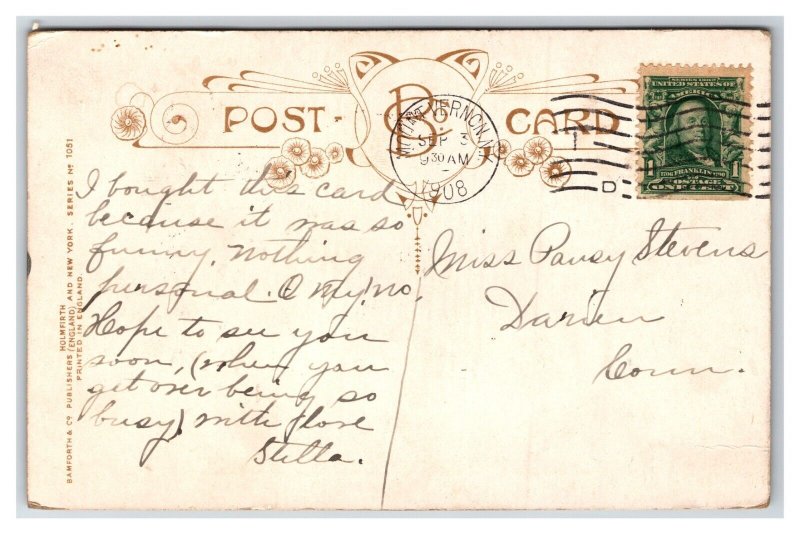 POST CARD
B
MOUNT VERNON, N.Y.
SEP 3
9 30 AM
1908
D
SERIES 1902
UNITED STATES OF
AMERICA
1706 FRANKLIN 1790
POSTAGE
1 ONE CENT 1
I bought this card
because it was so
funny, nothing
personal. O my! no.
Hope to see you
soon, (when you
get over being so
busy) with love
Stella.
Miss Pansy Stevens
Darien
Conn.
HOLMFIRTH
BAMFORTH & CO PUBLISHERS (ENGLAND) AND NEW YORK. SERIES NO 1051
PRINTED IN ENGLAND.